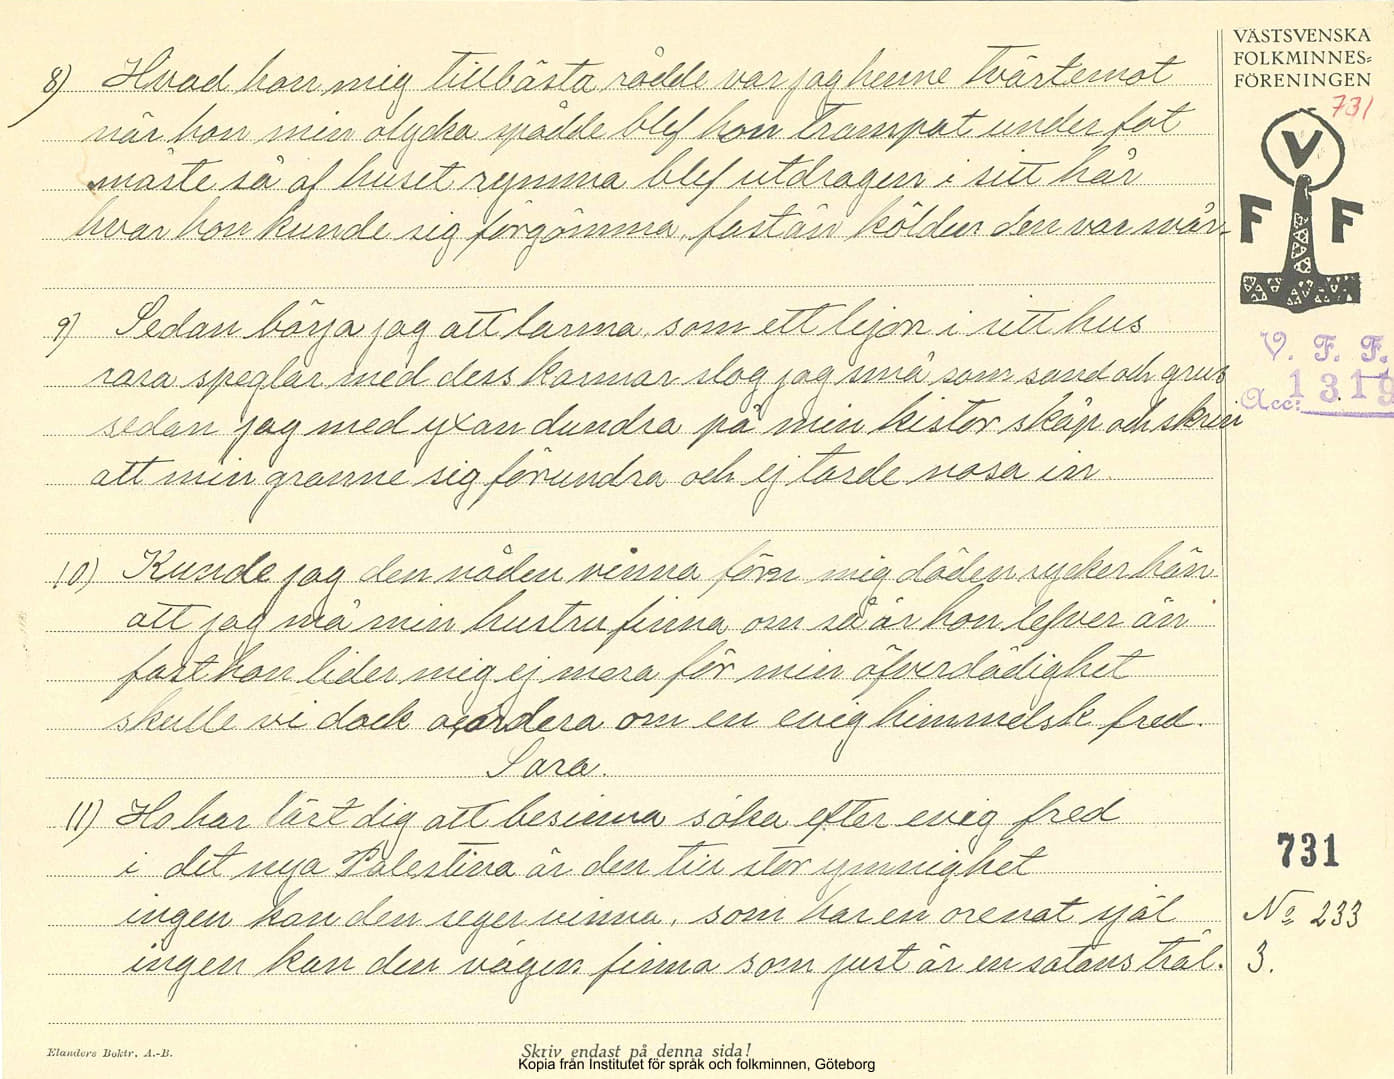 VÄSTSVENSKA
FOLKMINNES-
FÖRENINGEN
731
V
F F
V. F. F.
Acc: 1319
8) Hvad hon mig till bästa rådde var jag henne tvärtemot
när hon min olycka spådde blef hon trampat under fot
måste så af huset rymma blef utdragen i sitt hår
hvar hon kunde sig förgömma, fast än kölden den var svår.
9) Sedan börja jag att larma som ett lejon i sitt hus
rara speglar med dess karmar slog jag små som sand och grus
sedan jag med yxan dundra på min kistor skåp och skrin
att min granne sig förundra och ej torde nosa in
10) Kunde jag den nåden vinna förn mig döden rycker hän
att jag må min hustru finna om så är hon lefver än
fast hon lider mig ej mera för min öfverdådighet
skulle vi dock acordera om en evig himmelsk fred.
Sara.
11) Ho har lärt dig att besinna söka efter evig fred
i det nya Palestina är den till stor ymnighet
ingen kan den seger vinna, som har en orenat själ
ingen kan den vägen finna som just är en satans träl.
731
No 233
3.
Elanders Boktr. A.-B.
Skriv endast på denna sida!
Kopia från Institutet för språk och folkminnen, Göteborg